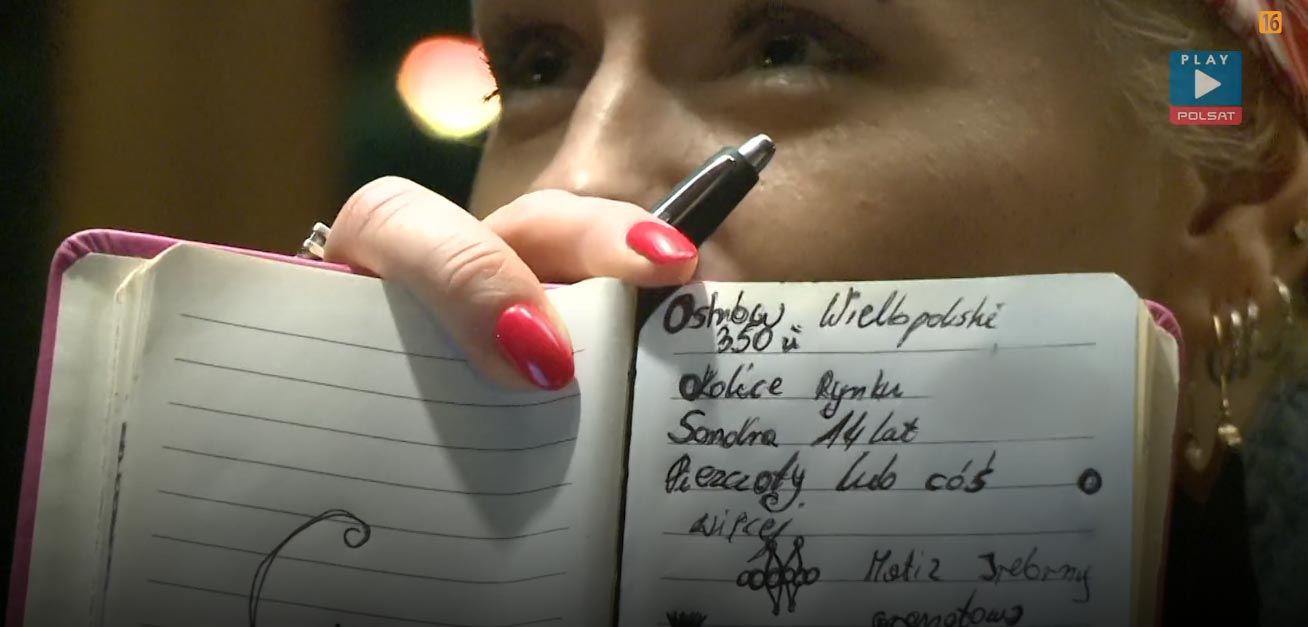 16
PLAY
POLSAT
Ostrów Wielkopolski
350
Okolice Rynku
Sandra 14 lat
Pieszczoty lub cóś
więcej.
Matiz Srebrny